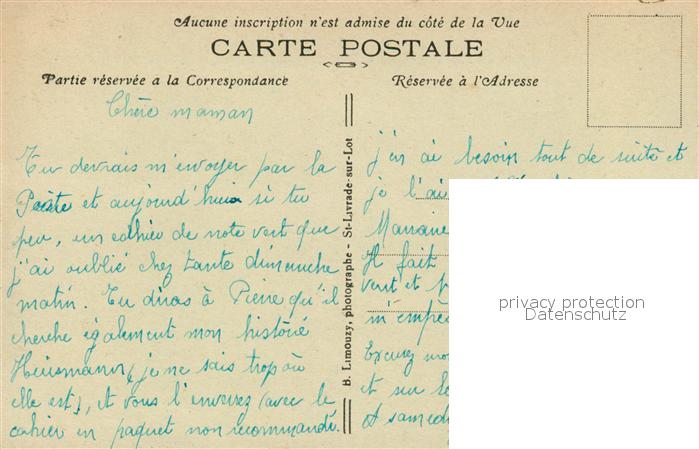 Aucune inscription n'est admise du côté de la Vue
CARTE POSTALE
Partie réservée a la Correspondance
Réservée à l'Adresse
Chère maman
Tu devrais m'envoyer par la
Poste et aujourd'hui si tu
peu, un cahier de note vert que
j'ai oublié chez tante dimanche
matin. Tu diras à Pierre qu'il
cherche également mon histoire
Huismann, (je ne sais trop où
elle est), et vous l'enverez (avec le
cahier en paquet non recommandé.
B. Limouzy, photographe - St-Livrade-sur-Lot
j'en ai besoin tout de suite et
je l'ai
Il fait
vent et
m'empê
Excusez
et sur
samedi
privacy protection
Datenschutz